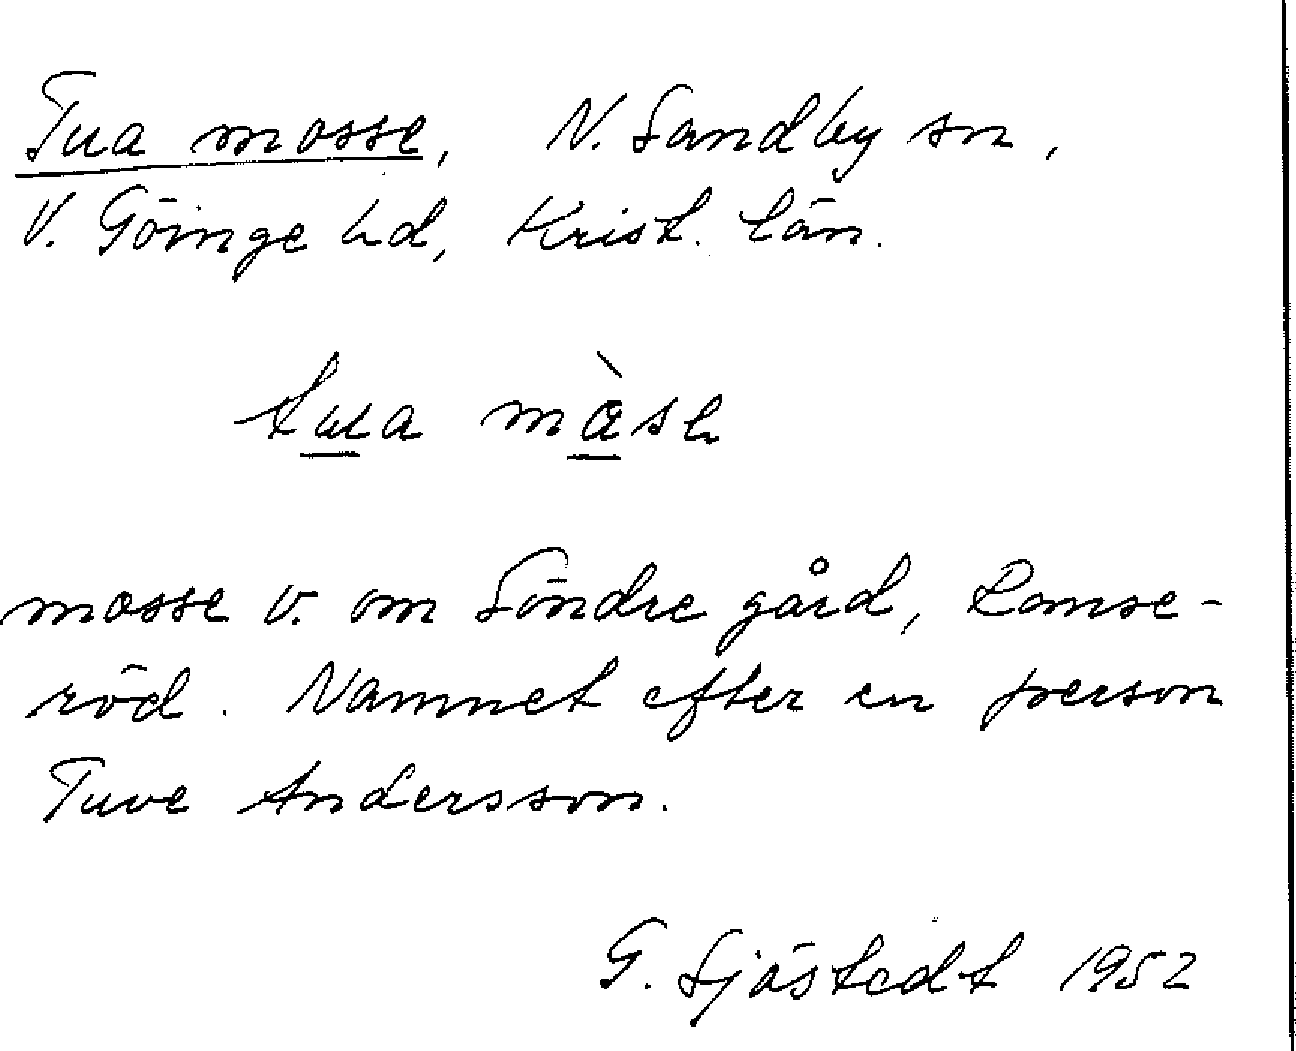 Tua mosse, N. Sandby sn,
V. Göinge hd, Krist. län.
tua màsε
mosse v. om Söndre gård, Ramse-
röd. Namnet efter en person
Tuve Andersson.
G. Sjöstedt 1952